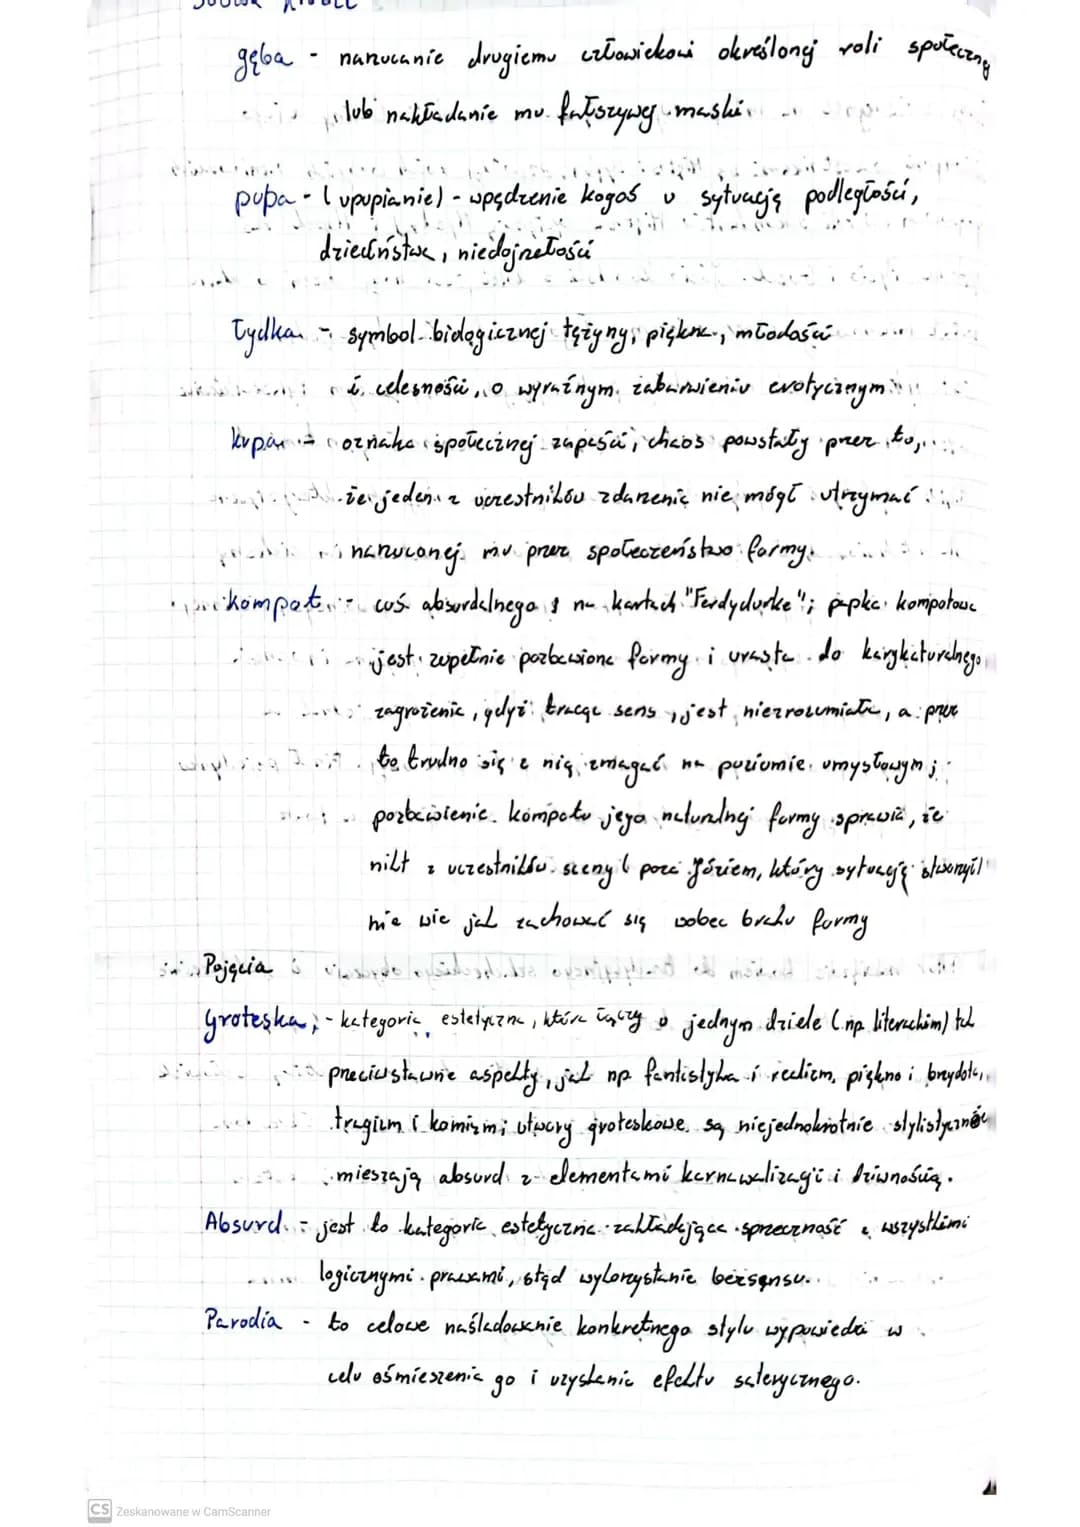 gęba - narzucanie drugiemu człowiekowi określonej roli społecznej
lub nakładanie mu fałszywej maski
pupa - (upupianie) - wpędzenie kogoś w sytuację podległości,
dzieciństwa, niedojrzałości
Łydka - symbol biologicznej tężyzny, piękna, młodości
i celesności, o wyraźnym zabarwieniu erotycznym
kupa - oznaka społecznej zapaści, chaos powstały przez to,
że jeden z uczestników zdarzenia nie mógł utrzymać
narzuconej mu przez społeczeństwo formy.
kompot - coś absurdalnego na kartach "Ferdydurke"; papka kompotowa
jest zupełnie pozbawiona formy i urasta do karykaturalnego
zagrożenia, gdyż tracąc sens, jest niezrozumiała, a przez
to trudno się z nią zmagać na poziomie umysłowym;
pozbawienie kompotu jego naturalnej formy sprawia, że
nikt z uczestników sceny (poza Józiem, który sytuację stworzył)
nie wie jak zachować się wobec braku formy
Pojęcia
Groteska - kategoria estetyczna, która łączy w jednym dziele (np. literackim) tak
przeciwstawne aspekty, jak np fantastyka i realizm, piękno i brzydota,
tragizm i komizm; utwory groteskowe są niejednokrotnie stylistycznie
mieszają absurd z elementami karnawalizacji i dziwnością.
Absurd - jest to kategoria estetyczna zakładająca sprzeczność z wszystkimi
logicznymi prawami, stąd wykorzystanie bezsensu.
Parodia - to celowe naśladowanie konkretnego stylu wypowiedzi w
celu ośmieszenia go i uzyskania efektu saterycznego.
CS Zeskanowane w CamScanner